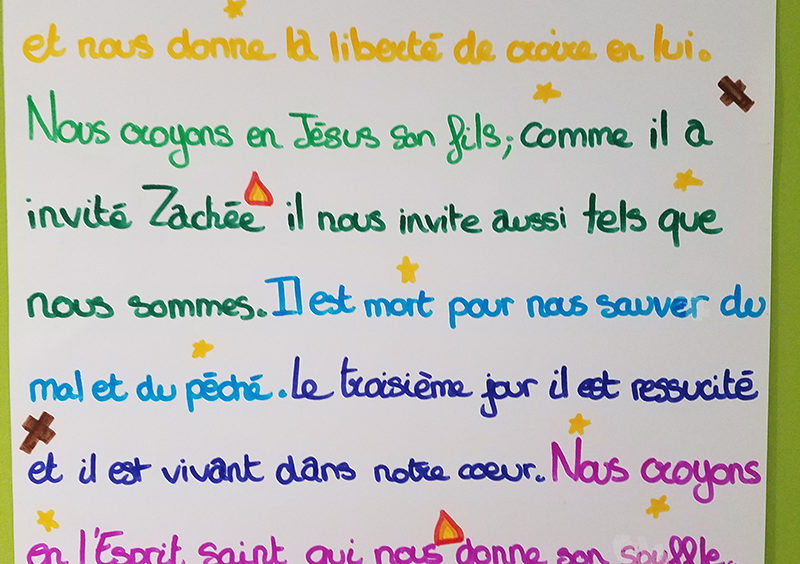 et nous donne la liberté de croire en lui.
Nous croyons en Jésus son fils; comme il a
invité Zachée il nous invite aussi tels que
nous sommes. Il est mort pour nous sauver du
mal et du péché. Le troisième jour il est ressucité
et il est vivant dans notre coeur. Nous croyons
en l'Esprit saint qui nous donne son souffle.